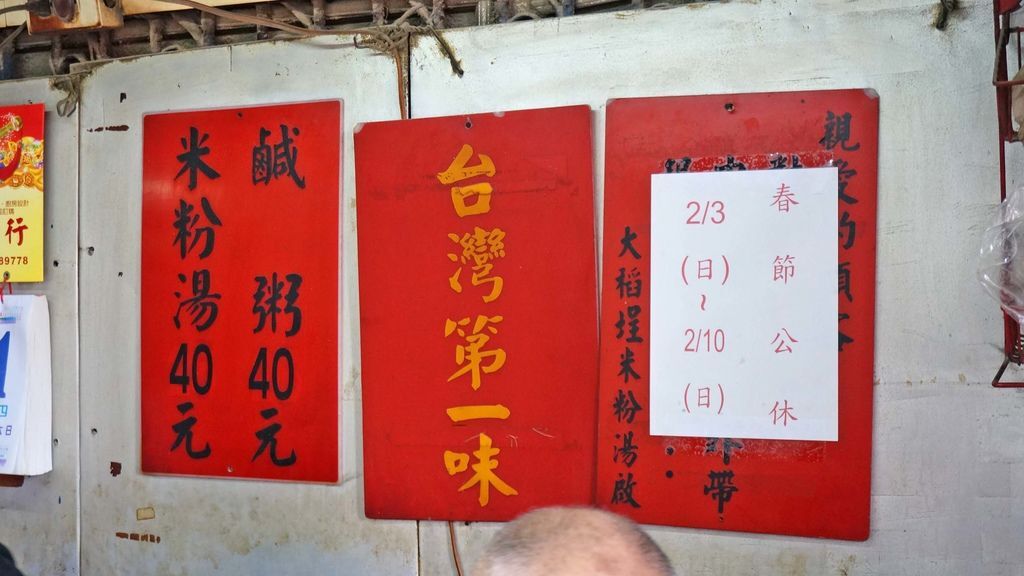 行
89778
鹹粥40元
米粉湯40元
台灣第一味
親愛的顧客
大稻埕米粉湯啟
外帶
春節公休
2/3
(日)
~
2/10
(日)